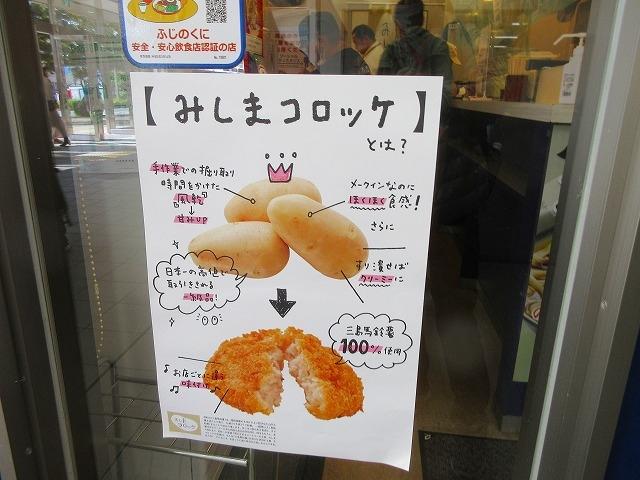 ふじのくに
安全・安心飲食店認証の店
【みしまコロッケ】
とは？
手作業での掘り取り
時間をかけた
"風乾"
↓
甘みUP
メークインなのに
ほくほく食感！
さらに
すり潰せば
クリーミーに
日本一の高値で
取引きされる
一級品！
三島馬鈴薯
100%使用
♪お店ごとに違う
♫味付け♪
みしま
コロッケ